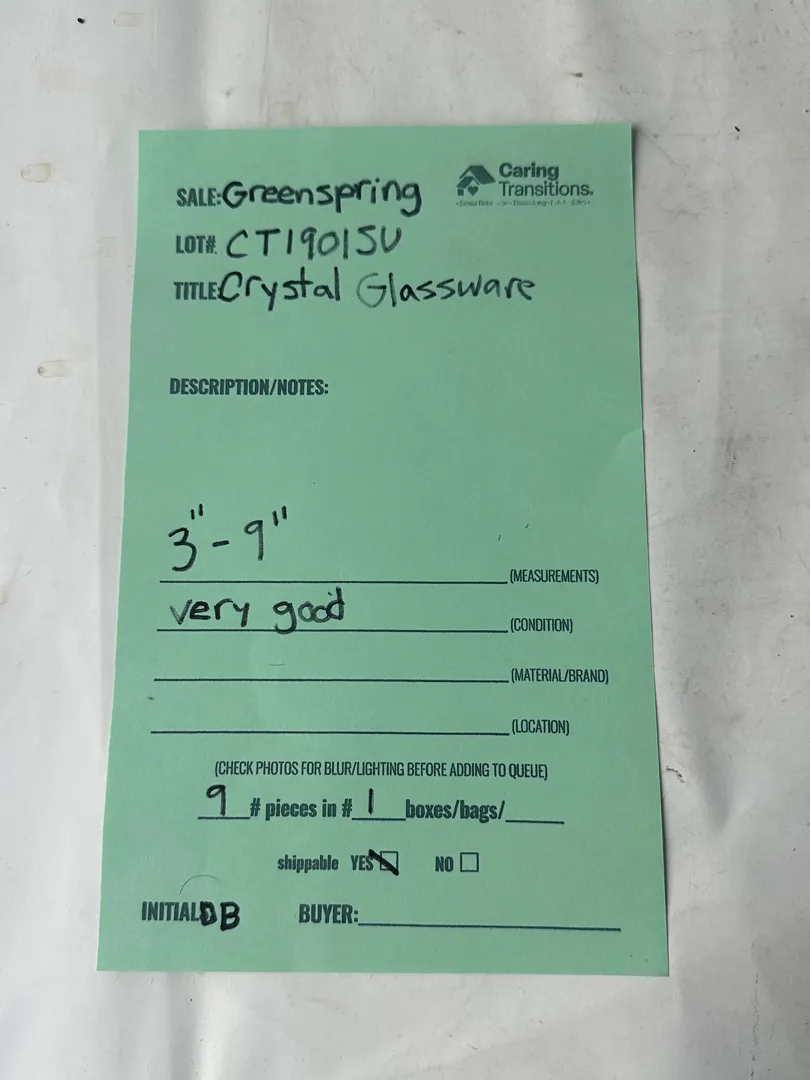 Caring
Transitions.
SALE: Greenspring
LOT#: CT1901SU
TITLE: Crystal Glassware
DESCRIPTION/NOTES:
3" - 9" (MEASUREMENTS)
very good (CONDITION)
(MATERIAL/BRAND)
(LOCATION)
(CHECK PHOTOS FOR BLUR/LIGHTING BEFORE ADDING TO QUEUE)
9 # pieces in # 1 boxes/bags/
shippable YES NO
INITIAL DB BUYER: